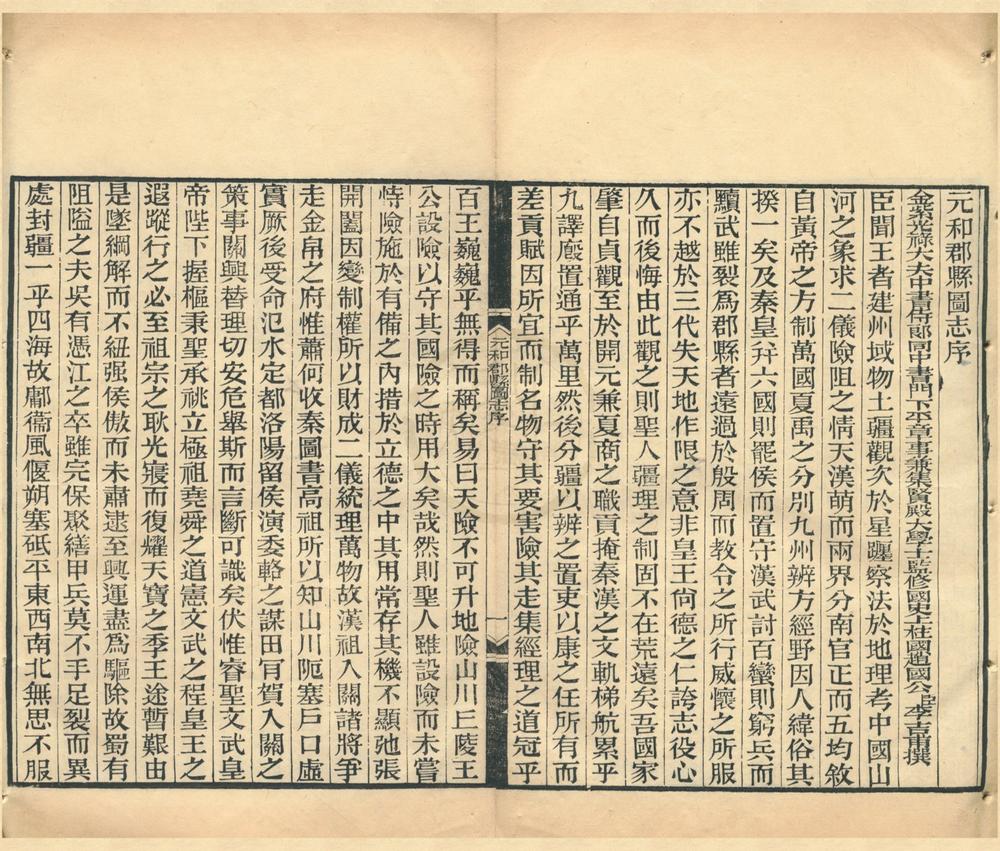 元和郡縣圖志序
金紫光祿大夫中書侍郎同中書門下平章事兼集賢殿大學士監修國史上柱國趙國公臣李吉甫撰
臣聞王者建州域物土疆觀次於星躔察法於地理考中國山
河之象求二儀險阻之情天漢萌而兩界分南官正而五均敘
自黃帝之方制萬國夏禹之分別九州辨方經野因人緯俗其
揆一矣及秦皇幷六國則罷侯而置守漢武討百蠻則窮兵而
黷武雖裂爲郡縣者遠過於殷周而教令之所行威懷之所服
亦不越於三代失天地作限之意非皇王尙德之仁誇志役心
久而後悔由此觀之則聖人疆理之制固不在荒遠矣吾國家
肇自貞觀至於開元兼夏商之職貢掩秦漢之文軌梯航累乎
九譯廄置通乎萬里然後分疆以辨之置吏以康之任所有而
差貢賦因所宜而制名物守其要害險其走集經理之道冠乎
元和郡縣圖志序
一
百王巍巍乎無得而稱矣易曰天險不可升地險山川丘陵王
公設險以守其國險之時用大矣哉然則聖人雖設險而未嘗
恃險施於有備之內措於立德之中其用常存其機不顯弛張
開闔因變制權所以財成二儀統理萬物故漢祖入關諸將爭
走金帛之府惟蕭何收秦圖書高祖所以知山川阨塞戶口虛
實厥後受命氾水定都洛陽留侯演委輅之謀田肎賀入關之
策事關興替理切安危舉斯而言斷可識矣伏惟睿聖文武皇
帝陛下握樞秉聖承祧立極祖堯舜之道憲文武之程皇王之
遐蹤行之必至祖宗之耿光寢而復耀天寶之季王途暫艱由
是墜綱解而不紐强侯傲而未肅逮至興運盡爲驅除故蜀有
阻隘之夫吳有憑江之卒雖完保聚繕甲兵莫不手足裂而異
處封疆一乎四海故鄘衞風偃朔塞砥平東西南北無思不服